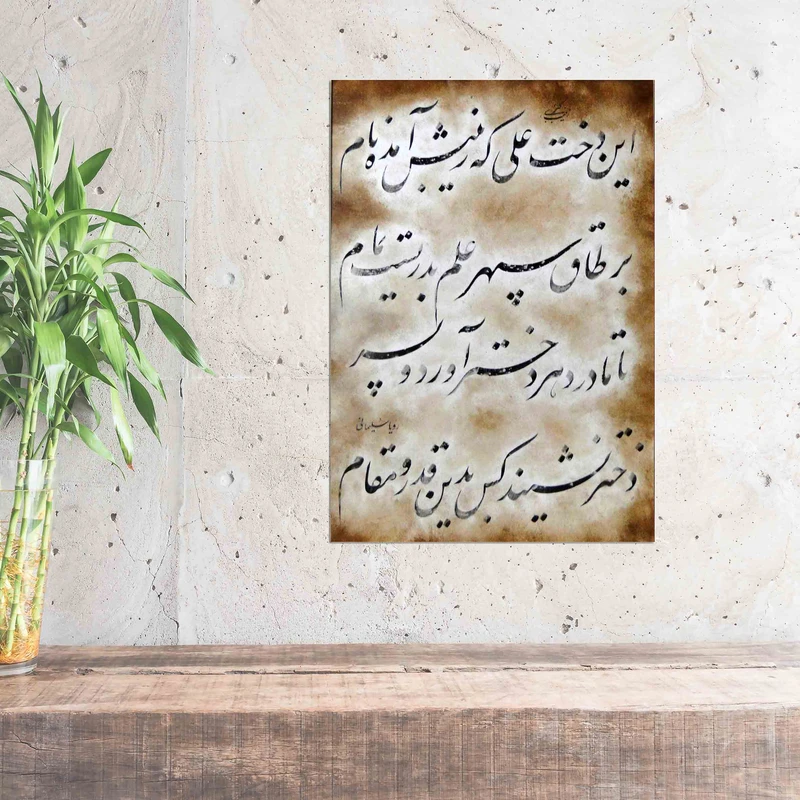 این دخت علی که زینبش آمده نام
بر طاق سپهر علم بدریست تمام
تا مادر دهر دختر آورد و پسر
رویا سلیمانی
دختر نشنیدکس بدین قدر و مقام